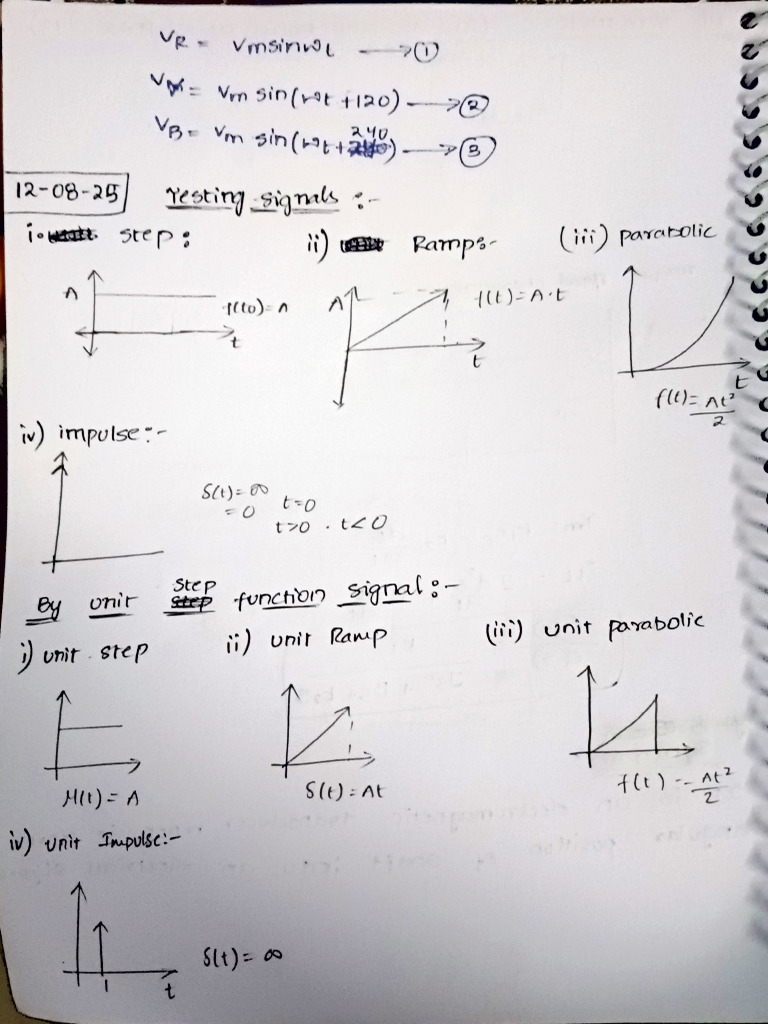 VR = Vmsinωt → ①
VY = Vm sin(ωt +120) → ②
VB = Vm sin(ωt + 240) → ③
12-08-25 Testing signals :-
i. step :
ii) Ramp:-
(iii) parabolic
A
f(t0) = A
t
A
f(t) = A·t
t
t
f(t) = At²/2
iv) impulse :-
δ(t) = ∞ t=0
= 0 t>0 . t<0
By unit step function signal :-
i) unit step
ii) unit Ramp
(iii) unit parabolic
μ(t) = A
δ(t) = At
f(t) = At²/2
iv) unit Impulse:-
δ(t) = ∞
1
t